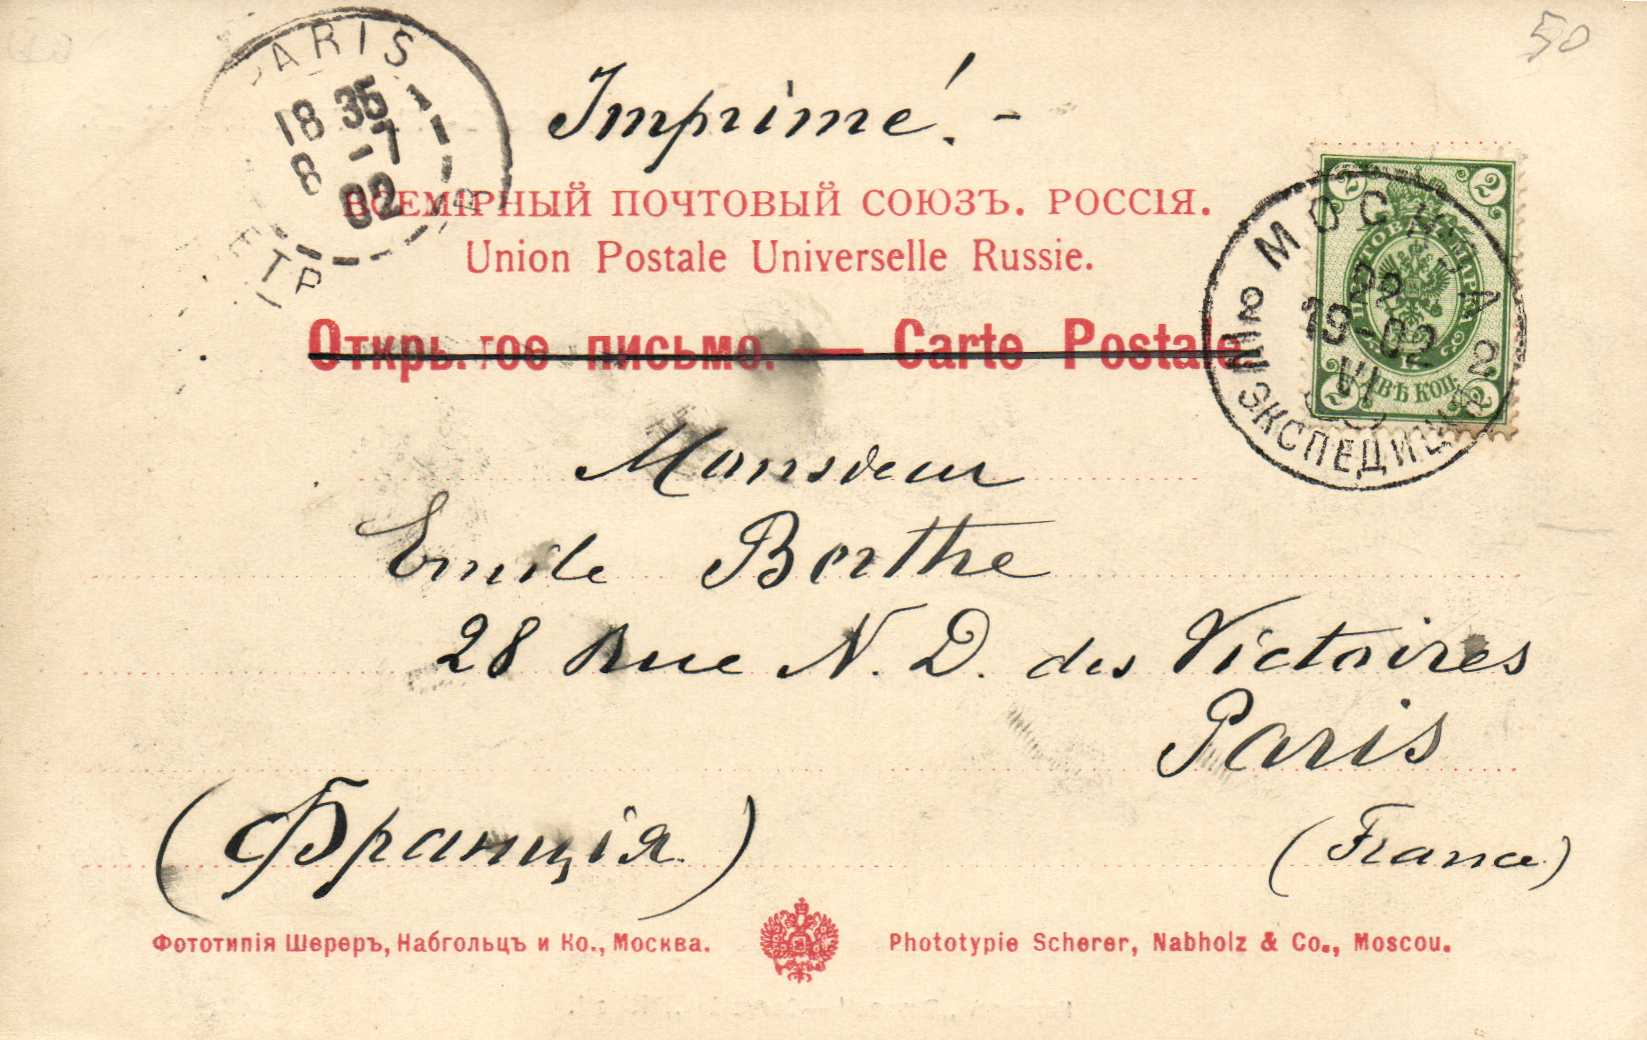 50
PARIS
18 35
8 -7
02
ETR
Imprimé. -
ВСЕМІРНЫЙ ПОЧТОВЫЙ СОЮЗЪ. РОССІЯ.
Union Postale Universelle Russie.
Открытое письмо. — Carte Postale
МОСКВА
22
19-02
VI
2
ЭКСПЕДИЦІЯ
2 2
ПОЧТОВАЯ МАРКА
ДВѢ КОП.
2 2
Monsieur
Emile Berthe
28 Rue N. D. des Victoires
Paris
(Франція) (France)
Фототипія Шереръ, Набгольцъ и Ко., Москва. Phototypie Scherer, Nabholz & Co., Moscou.